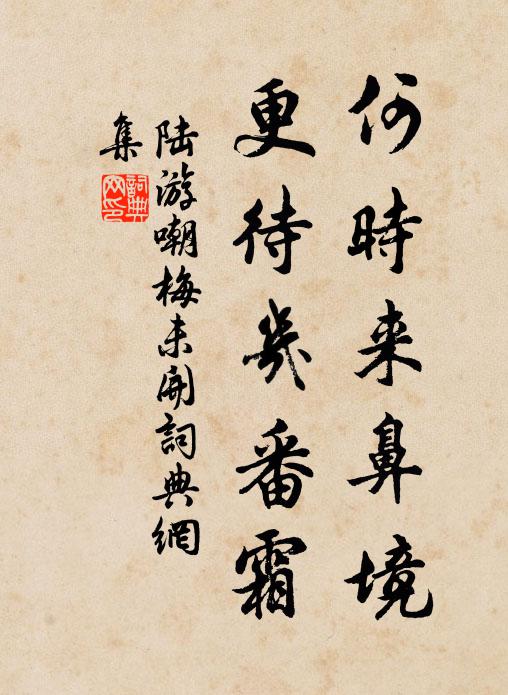 何時来鼻境
更待幾番霜
陆游嘲梅未開詞典網
集
詞典
网印